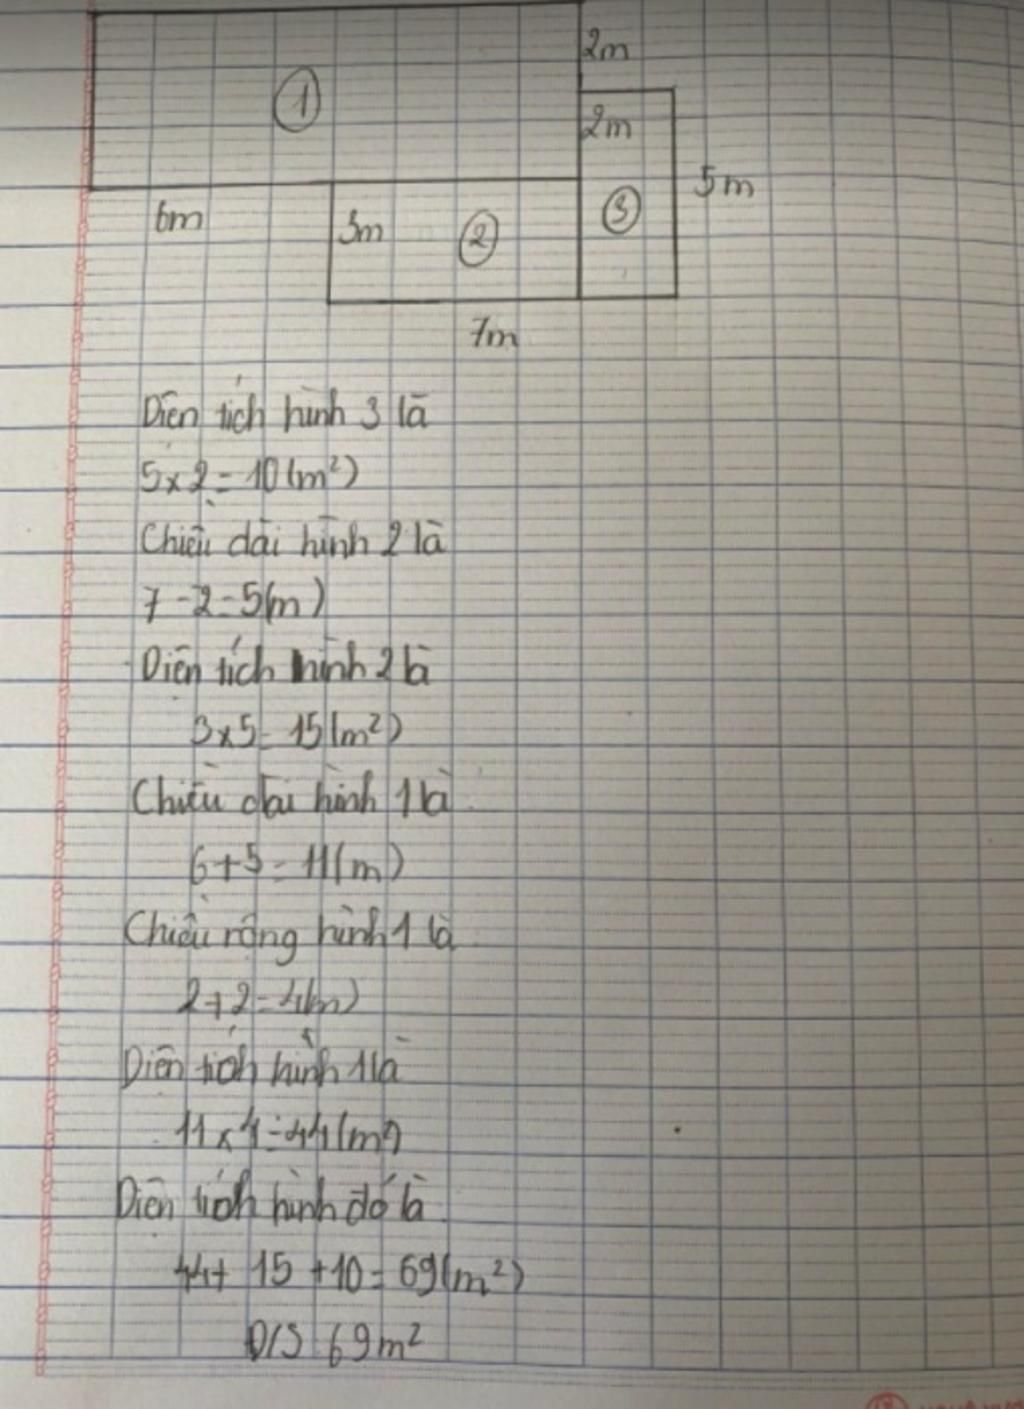 2m
1
2m
5m
6m
3m
2
3
7m
Diện tích hình 3 là
5x2=10(m²)
Chiều dài hình 2 là
7-2=5(m)
Diện tích hình 2 là
3x5=15(m²)
Chiều dài hình 1 là
6+5=11(m)
Chiều rộng hình 1 là
2+2=4(m)
Diện tích hình 1 là
11x4=44(m²)
Diện tích hình đó là
44+15+10=69(m²)
Đ/S 69m²